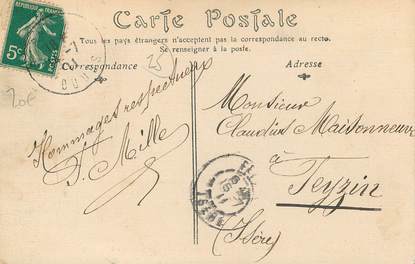 Carte Postale
Tous les pays étrangers n'acceptent pas la correspondance au recto.
Se renseigner à la poste.
Correspondance
Adresse
REPUBLIQUE FRANÇAISE
5c
POSTES
25
20€
Hommages respectueux
F. Mille
Monsieur
Claudius Maisonneuve
à
Feyzin
(Isère)